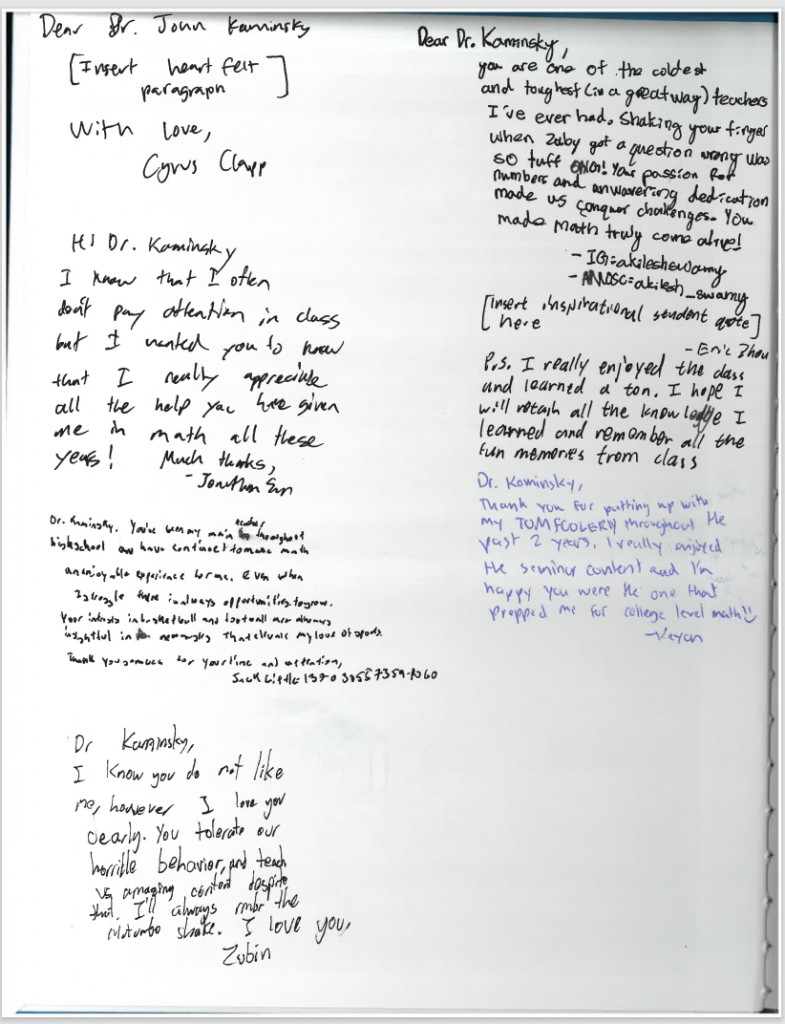 Dear Dr. John Kaminsky
[Insert heart felt
paragraph]
With love,
Cyrus Clapp
Hi Dr. Kaminsky
I know that I often
don't pay attention in class
but I wanted you to know
that I really appreciate
all the help you have given
me in math all these
years! Much thanks,
- Jonathan Sun
Dr. Kaminsky. You've been my main teacher throughout
highschool and have continued to make math
an enjoyable experience for me. Even when
I struggle there is always opportunities to grow.
Your intrests in basketball and football are always
insightful in
Thank you so much for your time and attention,
Jack Little
Dr Kaminsky,
I know you do not like
me, however I love you
dearly. You tolerate our
horrible behavior, and teach
us amazing content despite
that. I'll always rmbr the
Mutumbo shake. I love you,
Zubin
Dear Dr. Kaminsky,
you are one of the coldest
and toughest (in a great way) teachers
I've ever had. Shaking your finger
when Zuby got a question wrong was
so tuff Your passion for
numbers and unwavering dedication
made us conquer challenges. You
made math truly come alive!
- IG: akileshswamy
- AMOSC: akilesh_swamy
[insert inspirational student quote]
here
- Eric Zhou
P.S. I really enjoyed the class
and learned a ton. I hope I
will retain all the knowledge I
learned and remember all the
fun memories from class
Dr. Kaminsky,
Thank you for putting up with
my TOMFOOLERY throughout the
past 2 years. I really enjoyed
the seminar content and I'm
happy you were the one that
prepped me for college level math!!
- Keyan